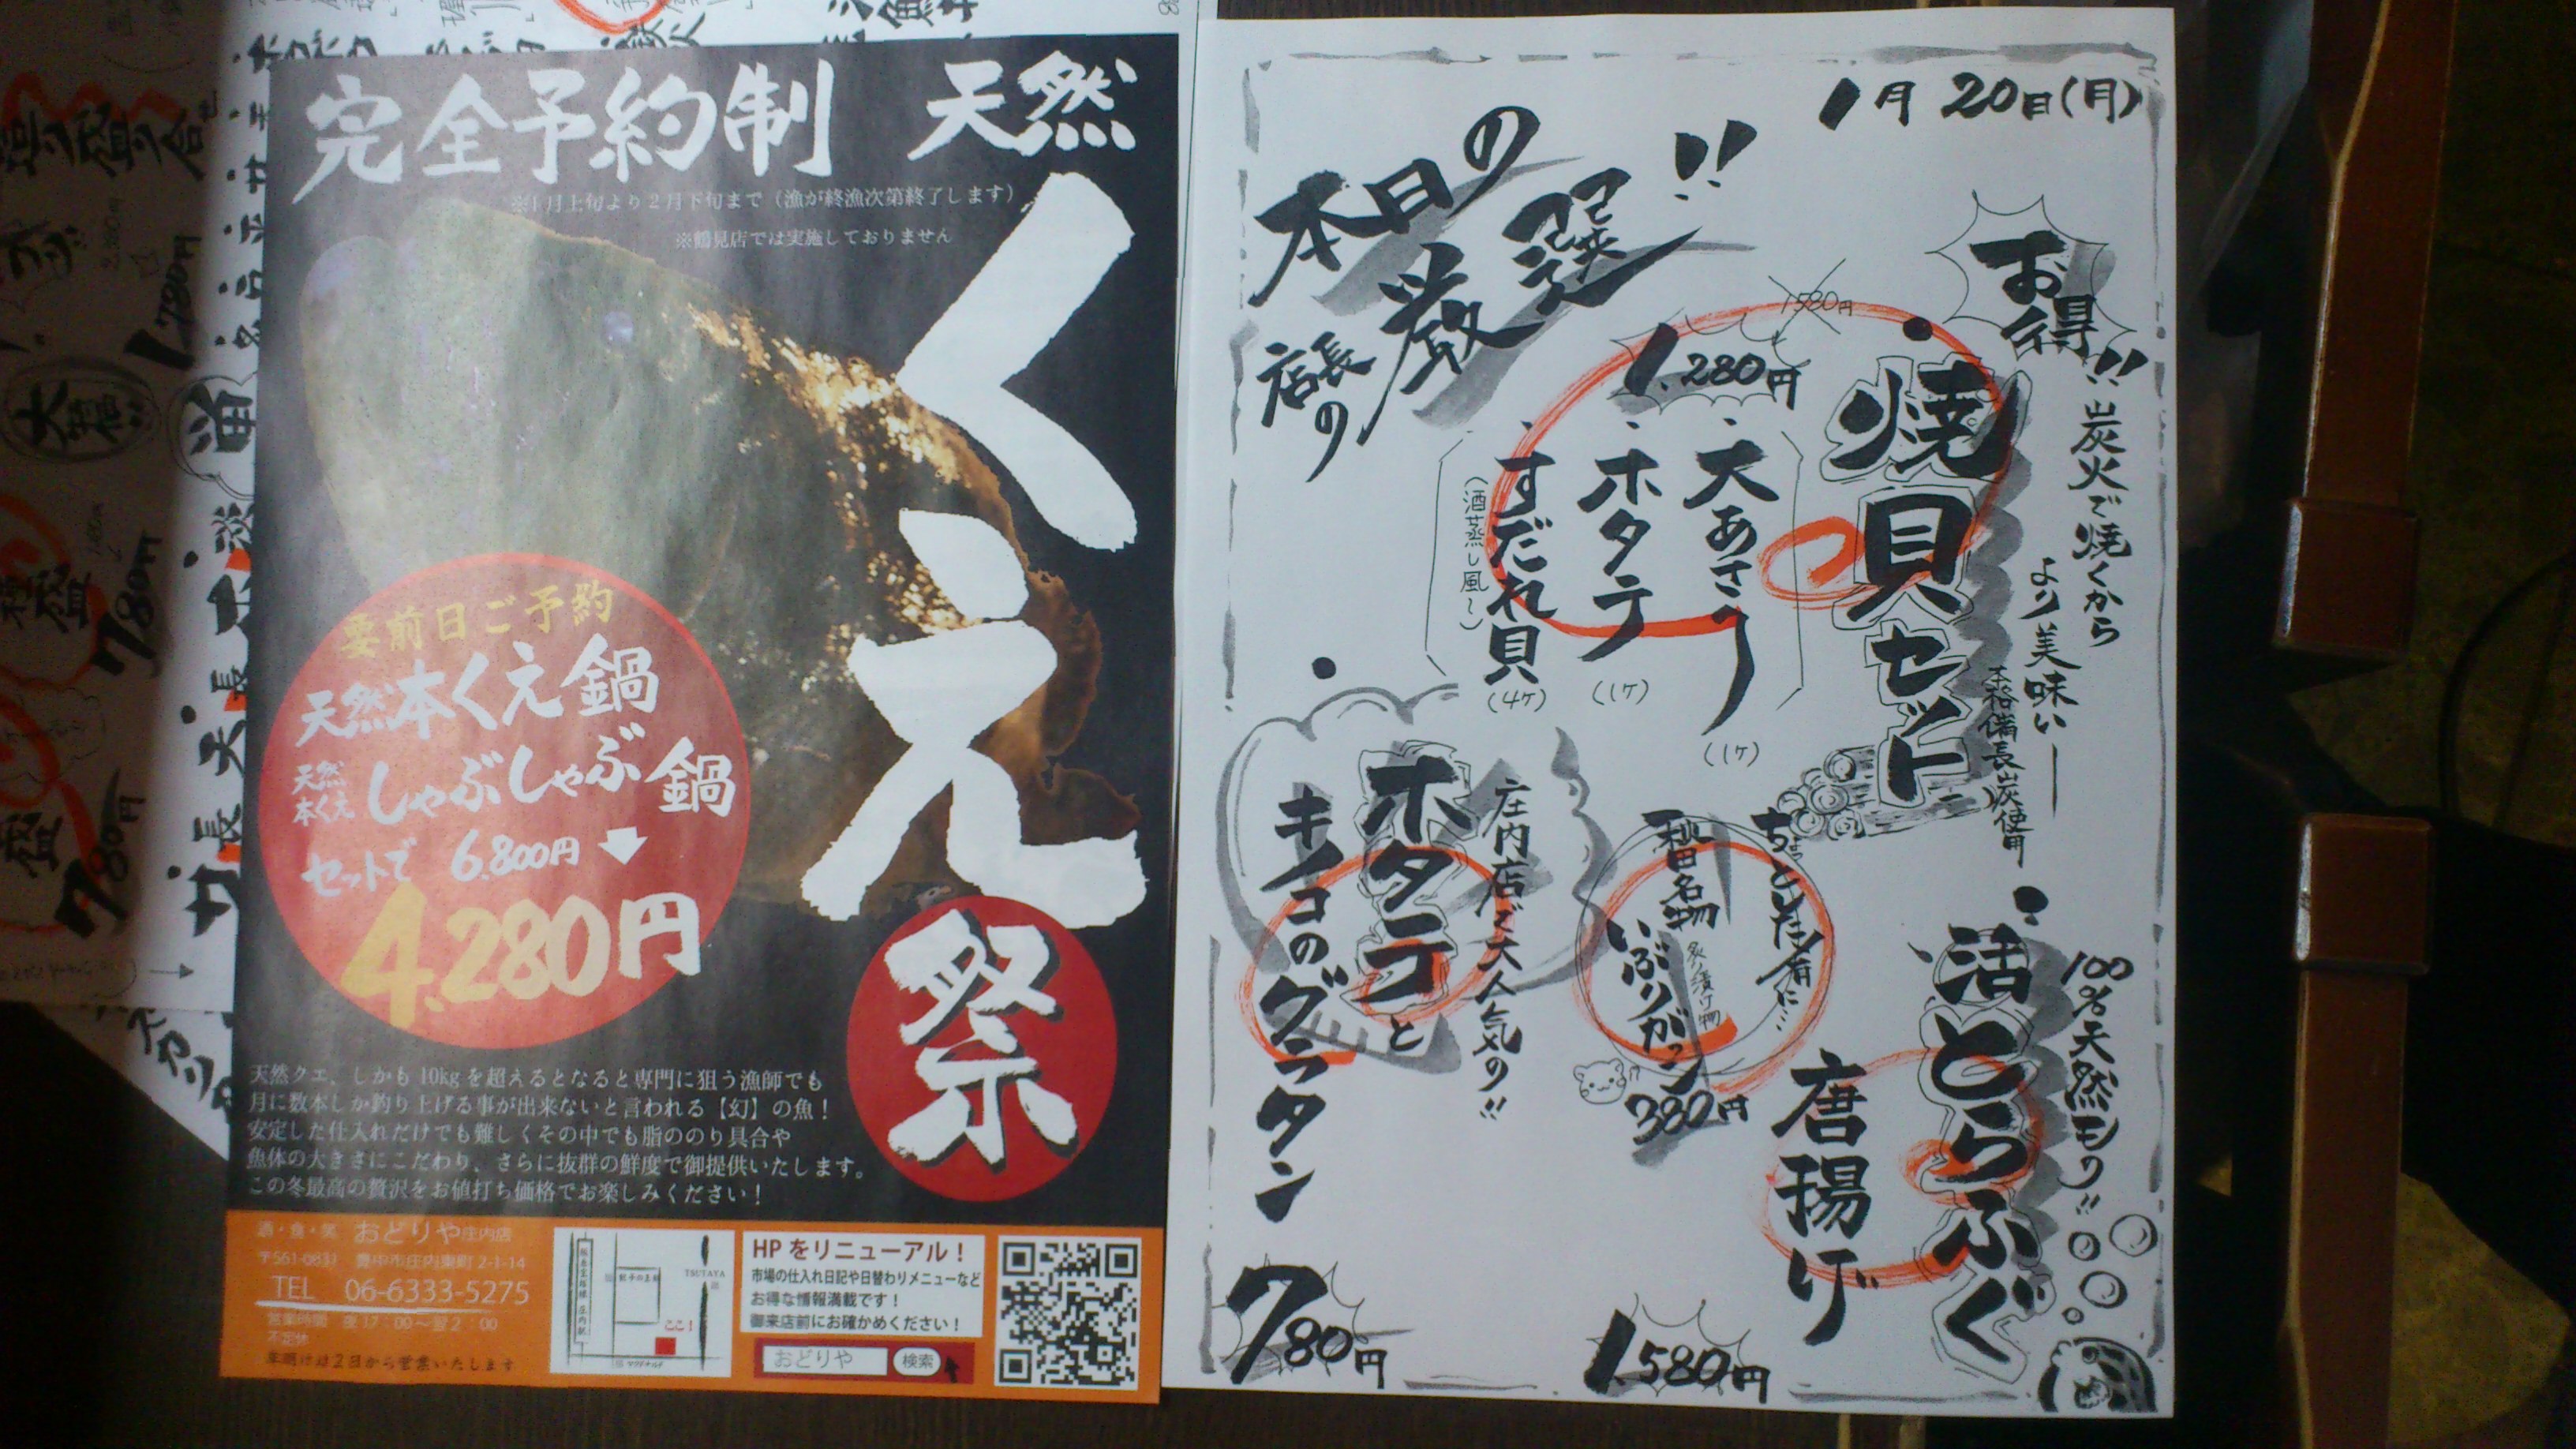 完全予約制
天然
くえ
祭
※1月上旬より2月下旬まで（漁が終漁次第終了します）
※鶴見店では実施しておりません
要前日ご予約
天然本くえ鍋
天然
本くえ
しゃぶしゃぶ鍋
セットで 6.800円
4.280円
天然クエ、しかも10kgを超えるとなると専門に狙う漁師でも
月に数本しか釣り上げる事が出来ないと言われる【幻】の魚！
安定した仕入れだけでも難しくその中でも脂ののり具合や
魚体の大きさにこだわり、さらに抜群の鮮度で御提供いたします。
この冬最高の贅沢をお値打ち価格でお楽しみください！
酒・食・笑 おどりや庄内店
〒561-0831 豊中市庄内東町2-1-14
TEL 06-6333-5275
営業時間 夜17：00〜翌2：00
不定休
年明けは2日から営業いたします
TSUTAYA
ここ！
マクドナルド
HPをリニューアル！
市場の仕入れ日記や日替わりメニューなど
お得な情報満載です！
御来店前にお確かめください！
おどりや
検索
1月20日(月)
本日の
店長の
厳選!!
お得!!
炭火で焼くから
より美味い
本格備長炭使用
焼貝セット
1580円
1.280円
大あさり
(1ケ)
ホタテ
(1ケ)
すだれ貝
(4ケ)
(酒蒸し風〜)
100%天然モノ!!
活とらふぐ
唐揚げ
1.580円
ちょっと箸休に…
秋田名物
いぶりがっこ
炙り漬け物
380円
庄内店で大人気の!!
ホタテと
キノコのグラタン
780円
1.780円
780円
780円